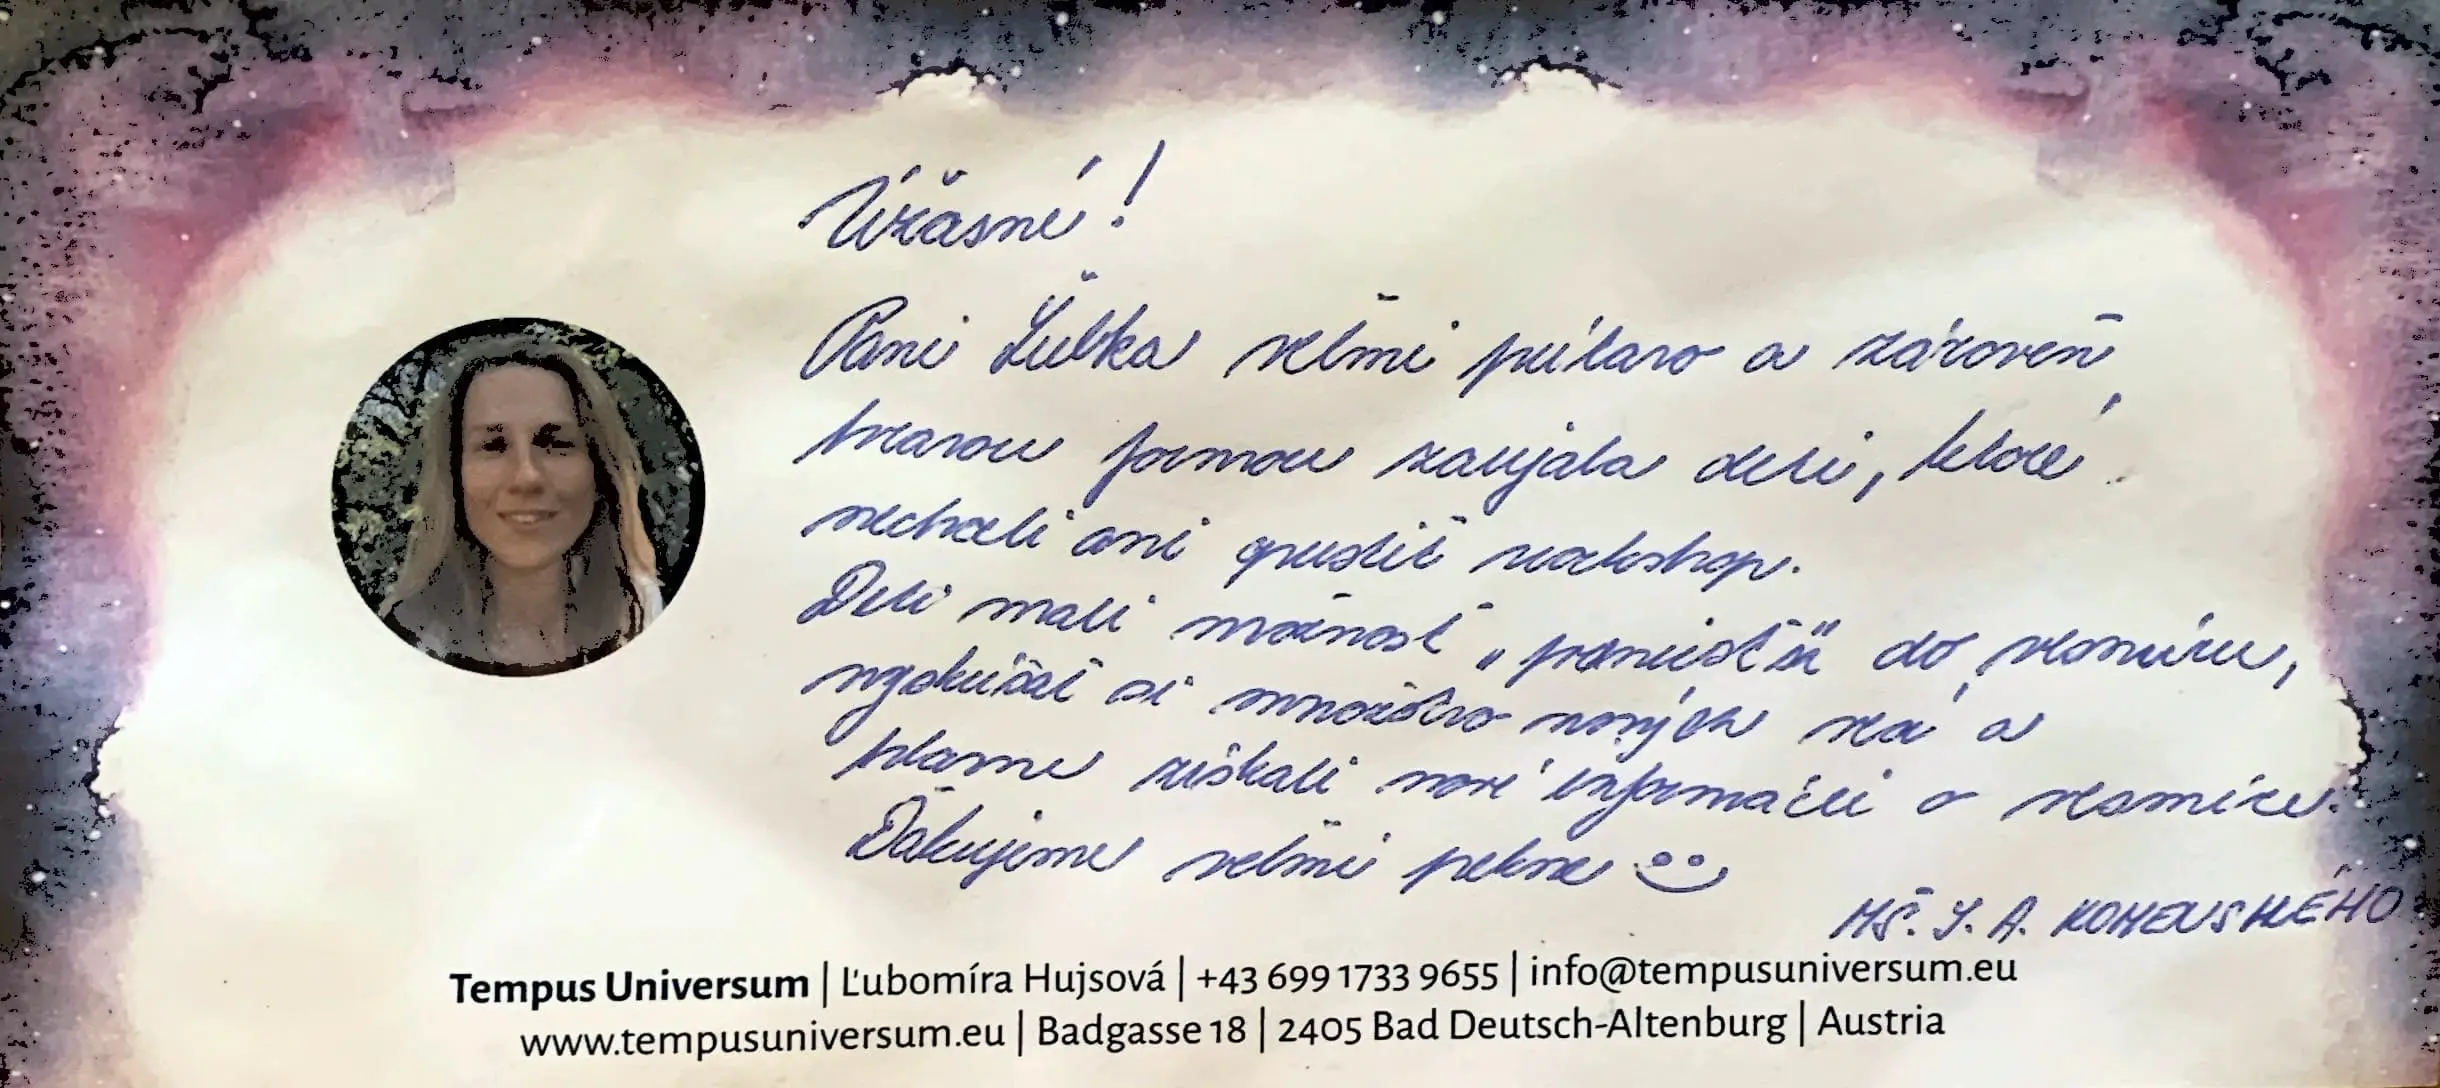 Úžasné!
Pani Ľubka veľmi pútavo a zároveň
hravou formou zaujala deti, ktoré
nechceli ani opustiť workshop.
Deti mali možnosť „preniesť sa" do vesmíru,
vyskúšať si množstvo nových vecí a
hlavne získali nové informácii o vesmíre.
Ďakujeme veľmi pekne
MŠ. J. A. KOMENSKÉHO
Tempus Universum | Ľubomíra Hujsová | +43 699 1733 9655 | info@tempusuniversum.eu
www.tempusuniversum.eu | Badgasse 18 | 2405 Bad Deutsch-Altenburg | Austria